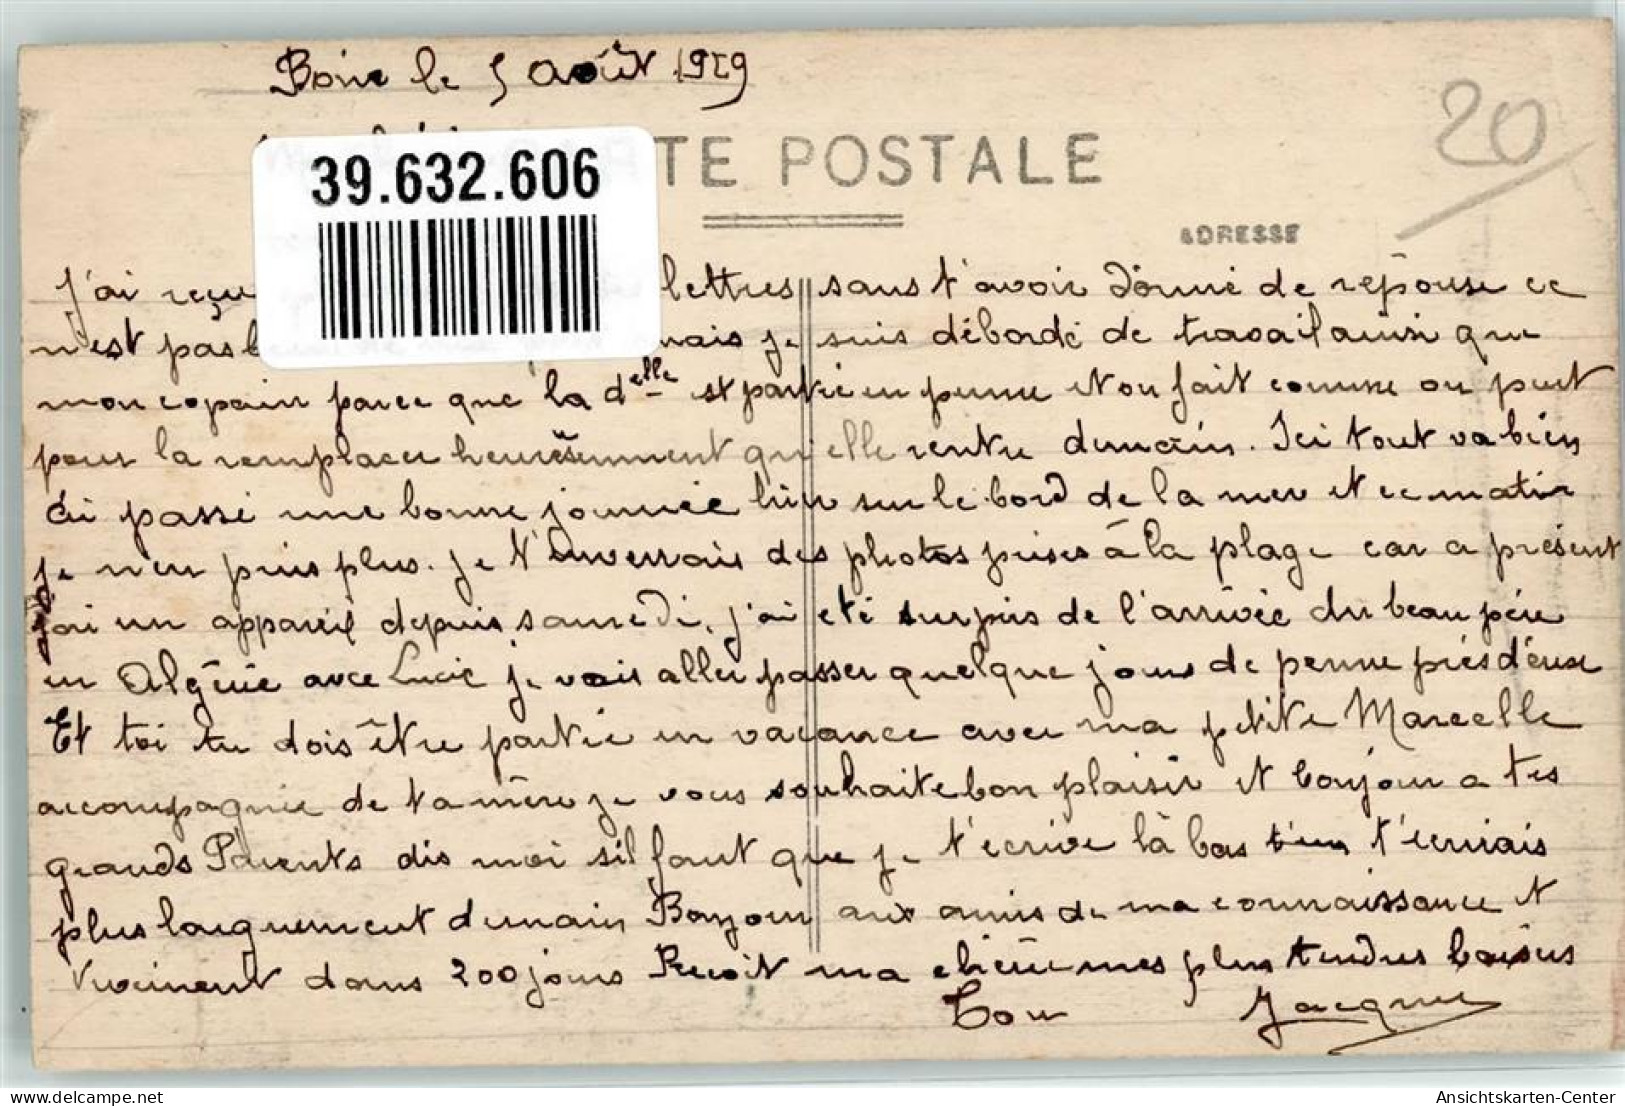 Bône le 5 Août 1929
39.632.606
TE POSTALE
20
ADRESSE
J'ai reçu lettres sans t'avoir donné de réponse ce
n'est pas mais je suis débordé de travail ainsi que
mon copain parce que la delle est partie en perme et on fait comme on peut
pour la remplacer heureusement qu'elle rentre demain. Ici tout va bien
ai passé une bonne journée hier sur le bord de la mer et ce matin
je n'en puis plus. je t'enverrais des photos prises à la plage car a présent
j'ai un appareil depuis samedi, j'ai été surpris de l'arrivée du beau père
en Algérie avec Lucie je vais aller passer quelque jours de perme près d'eux
Et toi tu dois être partie en vacance avec ma petite Marcelle
accompagnée de ta mère je vous souhaite bon plaisir et bonjour a tes
grands Parents dis moi s'il faut que je t'écrive là bas t'écrirais
plus longuement demain Bonjour aux amis de ma connaissance et
Vivement dans 200 jours Reçoit ma chérie mes plus tendres baisers
Ton Jacques
delcampe.net
Ansichtskarten-Center